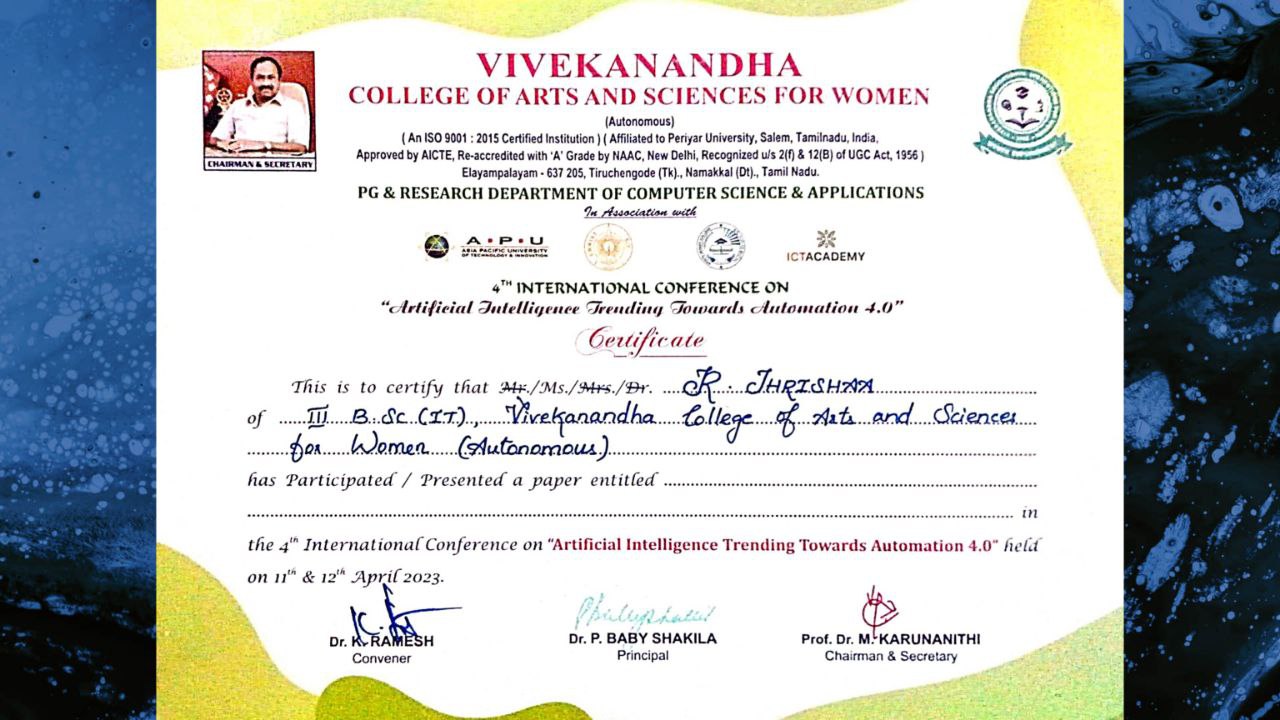 VIVEKANANDHA
COLLEGE OF ARTS AND SCIENCES FOR WOMEN
(Autonomous)
( An ISO 9001 : 2015 Certified Institution ) ( Affiliated to Periyar University, Salem, Tamilnadu, India,
Approved by AICTE, Re-accredited with 'A' Grade by NAAC, New Delhi, Recognized u/s 2(f) & 12(B) of UGC Act, 1956 )
Elayampalayam - 637 205, Tiruchengode (Tk)., Namakkal (Dt)., Tamil Nadu.
CHAIRMAN & SECRETARY
PG & RESEARCH DEPARTMENT OF COMPUTER SCIENCE & APPLICATIONS
In Association with
A•P•U
ASIA PACIFIC UNIVERSITY
OF TECHNOLOGY & INNOVATION
ICTACADEMY
4TH INTERNATIONAL CONFERENCE ON
"Artificial Intelligence Trending Towards Automation 4.0"
Certificate
This is to certify that Mr./Ms./Mrs./Dr. R. THRISHAA
of III B.Sc (IT), Vivekanandha College of Arts and Sciences
for Women (Autonomous)
has Participated / Presented a paper entitled
in
the 4th International Conference on "Artificial Intelligence Trending Towards Automation 4.0" held
on 11th & 12th April 2023.
Dr. K. RAMESH
Convener
Dr. P. BABY SHAKILA
Principal
Prof. Dr. M. KARUNANITHI
Chairman & Secretary